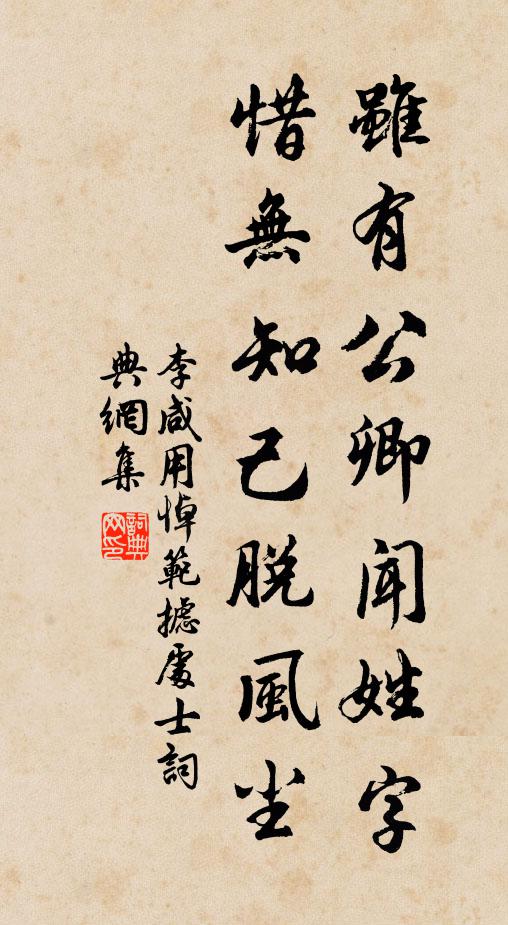 雖有公卿聞姓字
惜無知己脫風尘
李咸用悼範攄處士詞
典網集
詞典
网印